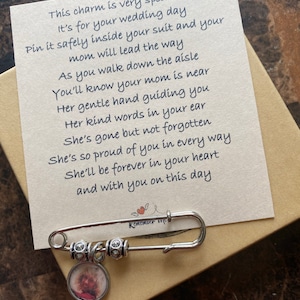 This charm is very
It's for your wedding day
Pin it safely inside your suit and your
mom will lead the way
As you walk down the aisle
You'll know your mom is near
Her gentle hand guiding you
Her kind words in your ear
She's gone but not forgotten
She's so proud of you in every way
She'll be forever in your heart
and with you on this day